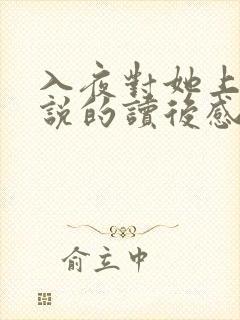 入夜對她上
說的讀後感
俞立中